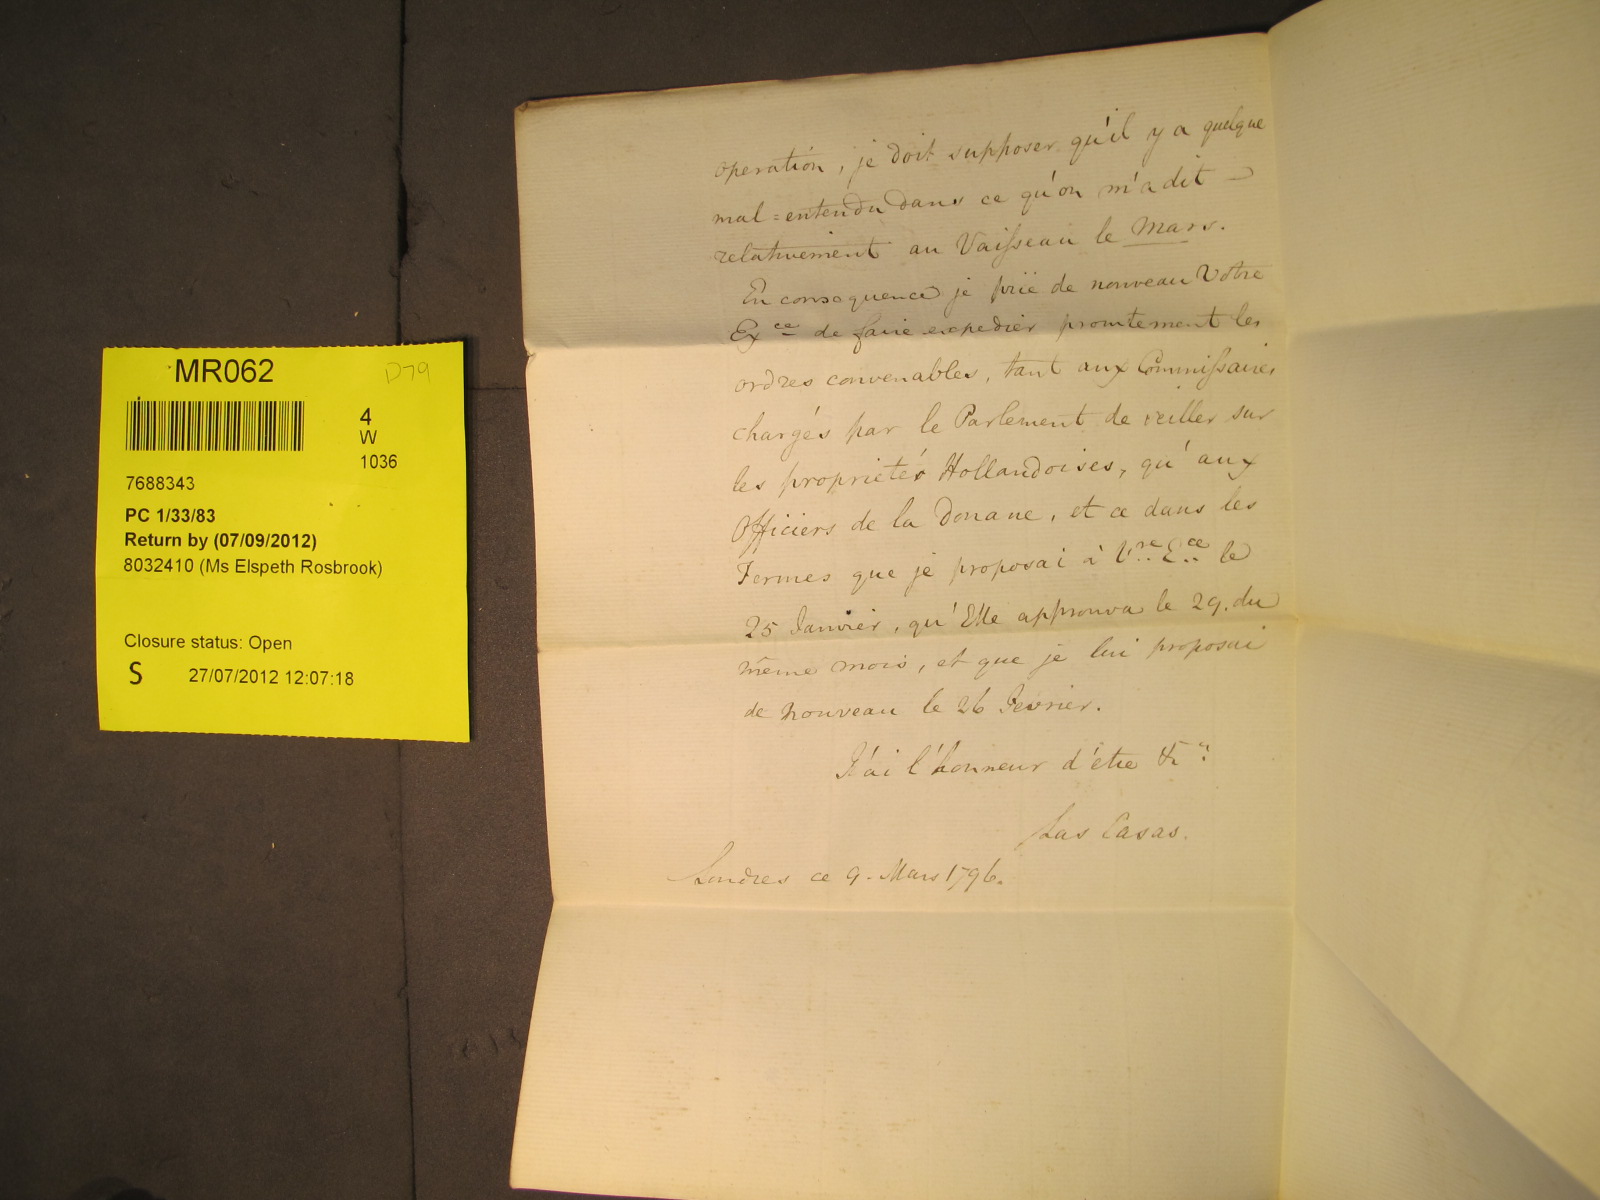 MR062
D79
4
W
1036
7688343
PC 1/33/83
Return by (07/09/2012)
8032410 (Ms Elspeth Rosbrook)
Closure status: Open
S 27/07/2012 12:07:18
operation, je doit supposer qu'il y a quelque
mal=entendu dans ce qu'on m'a dit
relativement au Vaisseau le Mars.
En consequence je prie de nouveau Votre
Exce de faire expedier promtement les
ordres convenables, tant aux Commissaires
chargés par le Parlement de veiller sur
les proprietés Hollandoises, qu'aux
Officiers de la Douane, et ce dans les
Termes que je proposai à Vre Ece le
25 Janvier, qu'Elle approuva le 29. du
même mois, et que je lui proposai
de nouveau le 26 Fevrier.
J'ai l'honneur d'être &a
Las Casas.
Londres ce 9. Mars 1796.